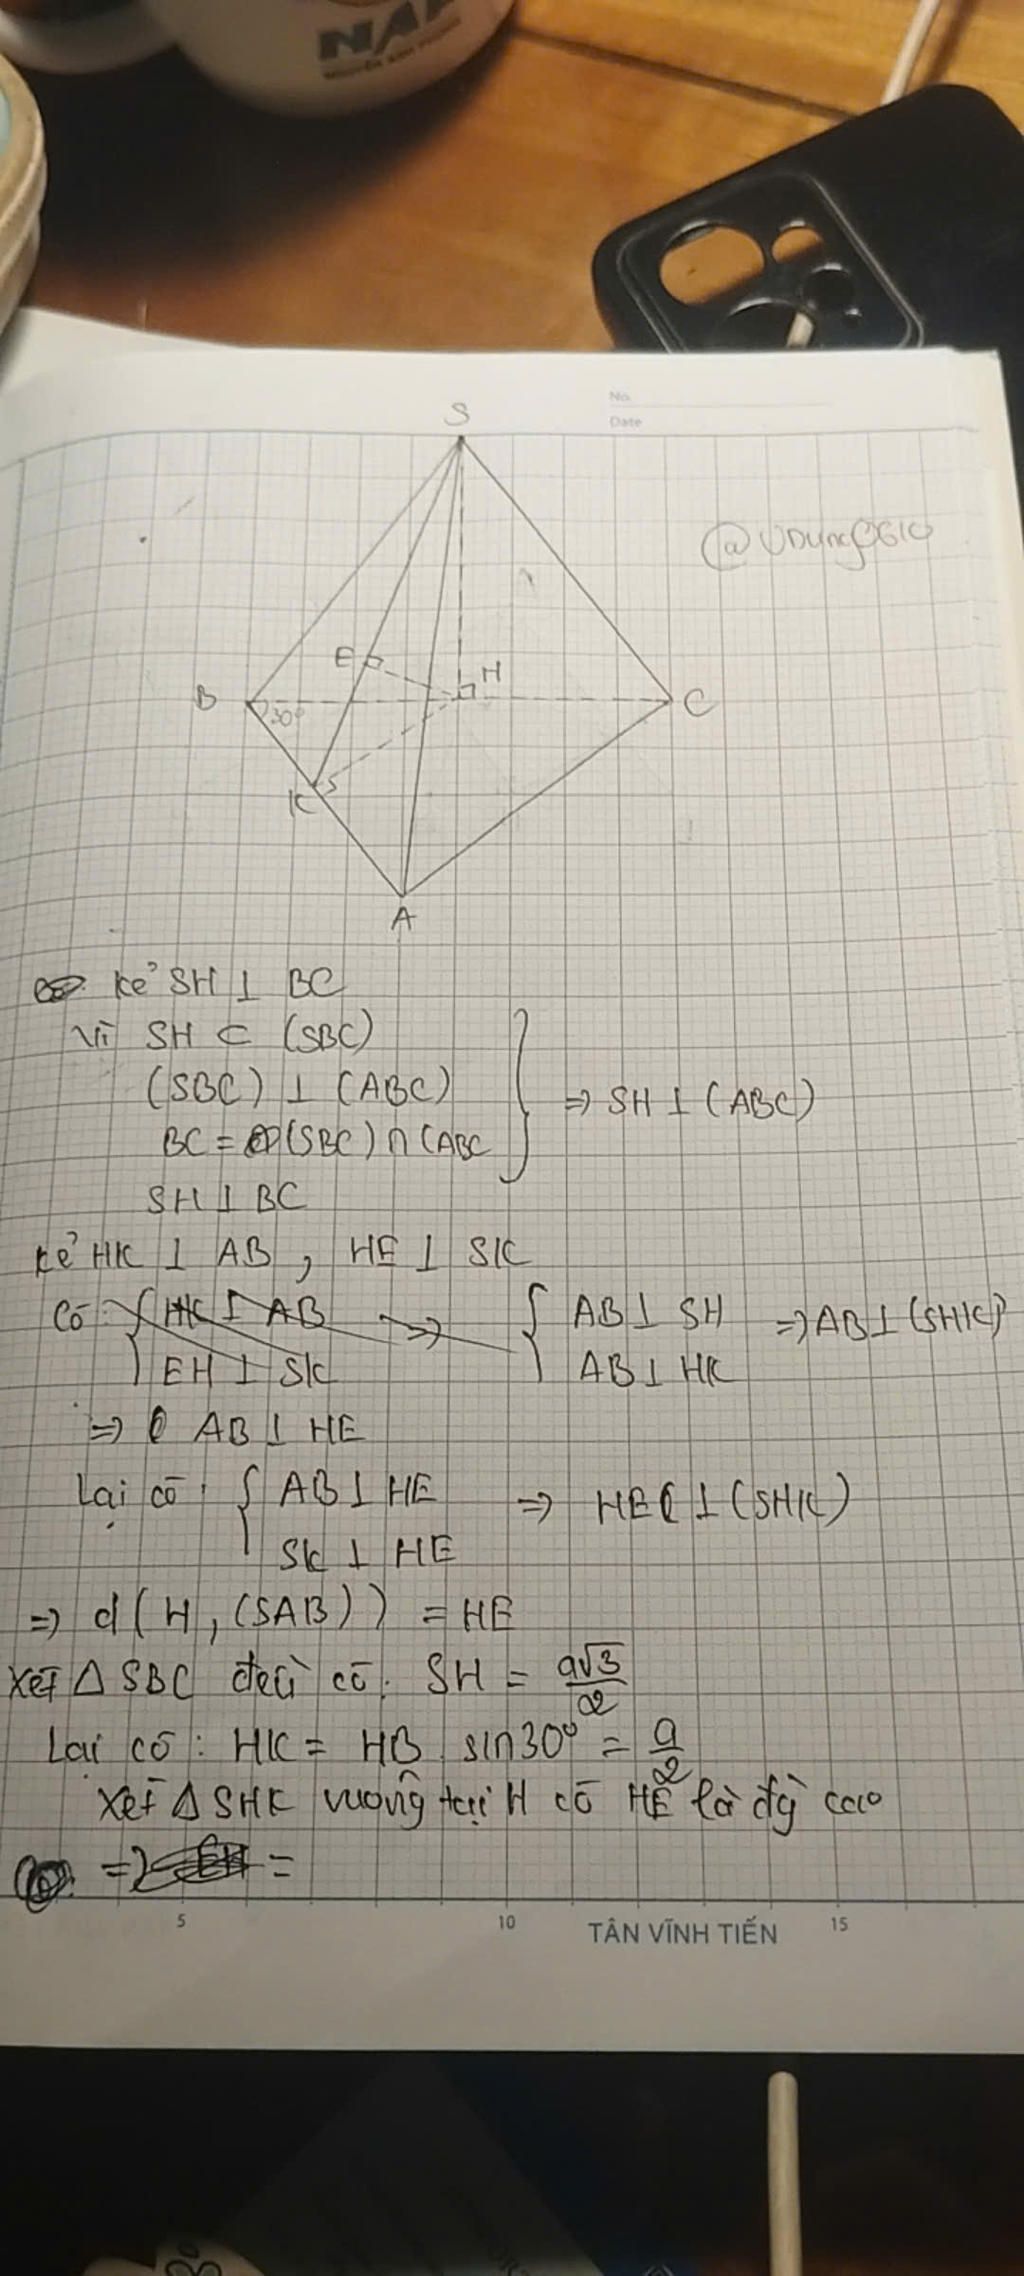 NAP
No.
Date
S
E
H
B
30°
C
K
A
Kẻ SH ⊥ BC
Vì SH ⊂ (SBC)
(SBC) ⊥ (ABC)
BC = (SBC) ∩ (ABC
SH ⊥ BC
⇒ SH ⊥ (ABC)
Kẻ HK ⊥ AB , HE ⊥ SK
Có : { HK ⊥ AB ⇒ { AB ⊥ SH ⇒ AB ⊥ (SHK)
EH ⊥ SK AB ⊥ HK
⇒ AB ⊥ HE
Lại có : { AB ⊥ HE ⇒ HE ⊥ (SHK)
SK ⊥ HE
⇒ d(H, (SAB)) = HE
Xét Δ SBC đều có: SH = a√3/2
Lại có : HK = HB . sin30° = a/2
Xét Δ SHK vuông tại H có HE là đg cao
⇒ EH =
5 10 TÂN VĨNH TIẾN 15